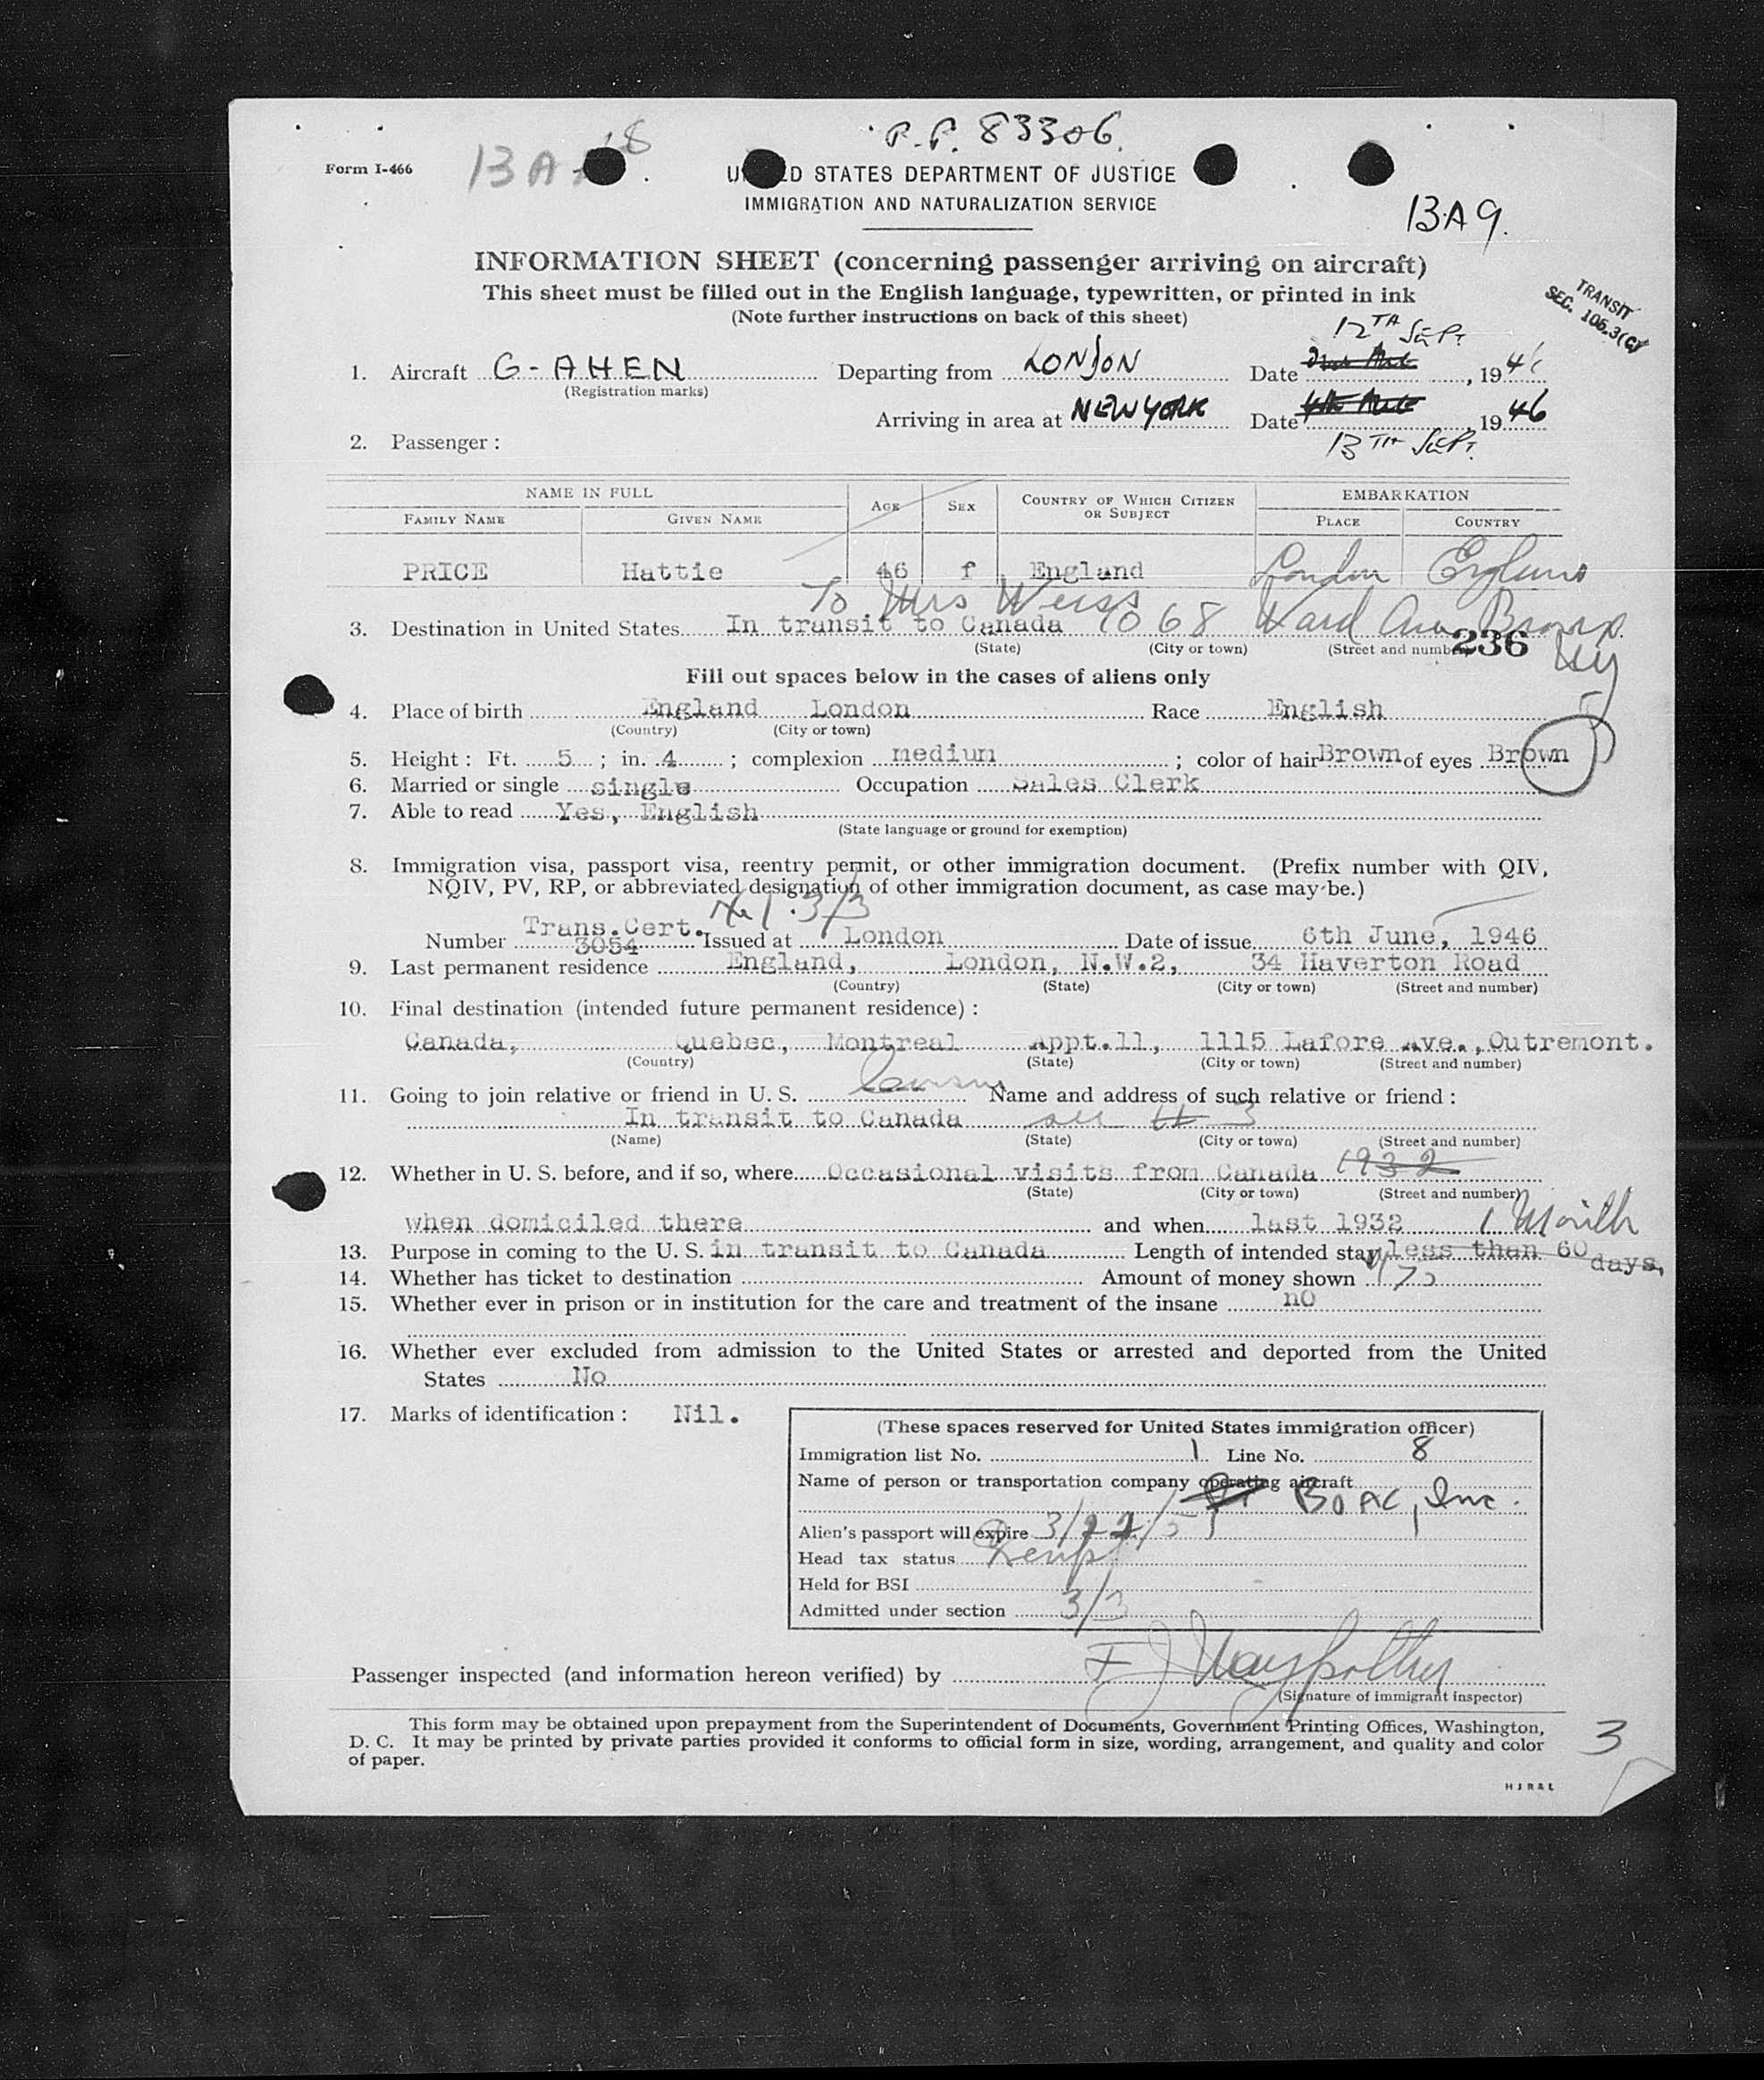 P.P. 83306.
Form I-466
13A 8
UNITED STATES DEPARTMENT OF JUSTICE
IMMIGRATION AND NATURALIZATION SERVICE
13A9.
INFORMATION SHEET (concerning passenger arriving on aircraft)
This sheet must be filled out in the English language, typewritten, or printed in ink
(Note further instructions on back of this sheet)
TRANSIT
SEC. 106.3(C)
12TH SEPT.
1. Aircraft G-AHEN Departing from LONDON Date , 1946
(Registration marks)
Arriving in area at NEW YORK Date , 1946
13TH SEPT.
2. Passenger :
NAME IN FULL AGE SEX COUNTRY OF WHICH CITIZEN OR SUBJECT EMBARKATION
FAMILY NAME GIVEN NAME PLACE COUNTRY
PRICE Hattie 46 f England London England
To Mrs Weiss
3. Destination in United States In transit to Canada 1068 Ward Ave Bronx
(State) (City or town) (Street and number) 236 NY
Fill out spaces below in the cases of aliens only
4. Place of birth England London Race English
(Country) (City or town)
5. Height : Ft. 5 ; in. 4 ; complexion medium ; color of hair Brown of eyes Brown
6. Married or single single Occupation Sales Clerk
7. Able to read Yes, English
(State language or ground for exemption)
8. Immigration visa, passport visa, reentry permit, or other immigration document. (Prefix number with QIV,
NQIV, PV, RP, or abbreviated designation of other immigration document, as case may be.)
3/3
Number Trans.Cert. 3054 Issued at London Date of issue 6th June, 1946
9. Last permanent residence England, London, N.W.2, 34 Haverton Road
(Country) (State) (City or town) (Street and number)
10. Final destination (intended future permanent residence) :
Canada, Quebec, Montreal Appt.11, 1115 Lafore Ave., Outremont.
(Country) (State) (City or town) (Street and number)
11. Going to join relative or friend in U. S. Cousin Name and address of such relative or friend :
In transit to Canada see # 3
(Name) (State) (City or town) (Street and number)
12. Whether in U. S. before, and if so, where Occasional visits from Canada 1932
(State) (City or town) (Street and number)
when domiciled there and when last 1932 1 Month
13. Purpose in coming to the U. S. in transit to Canada Length of intended stay less than 60 days,
14. Whether has ticket to destination Amount of money shown
15. Whether ever in prison or in institution for the care and treatment of the insane nO
16. Whether ever excluded from admission to the United States or arrested and deported from the United
States No
17. Marks of identification : Nil.
(These spaces reserved for United States immigration officer)
Immigration list No. 1 Line No. 8
Name of person or transportation company operating aircraft
BOAC, Inc.
Alien's passport will expire
Head tax status
Held for BSI
Admitted under section 3/3
Passenger inspected (and information hereon verified) by
(Signature of immigrant inspector)
This form may be obtained upon prepayment from the Superintendent of Documents, Government Printing Offices, Washington,
D. C. It may be printed by private parties provided it conforms to official form in size, wording, arrangement, and quality and color
of paper.
3
HJRAL